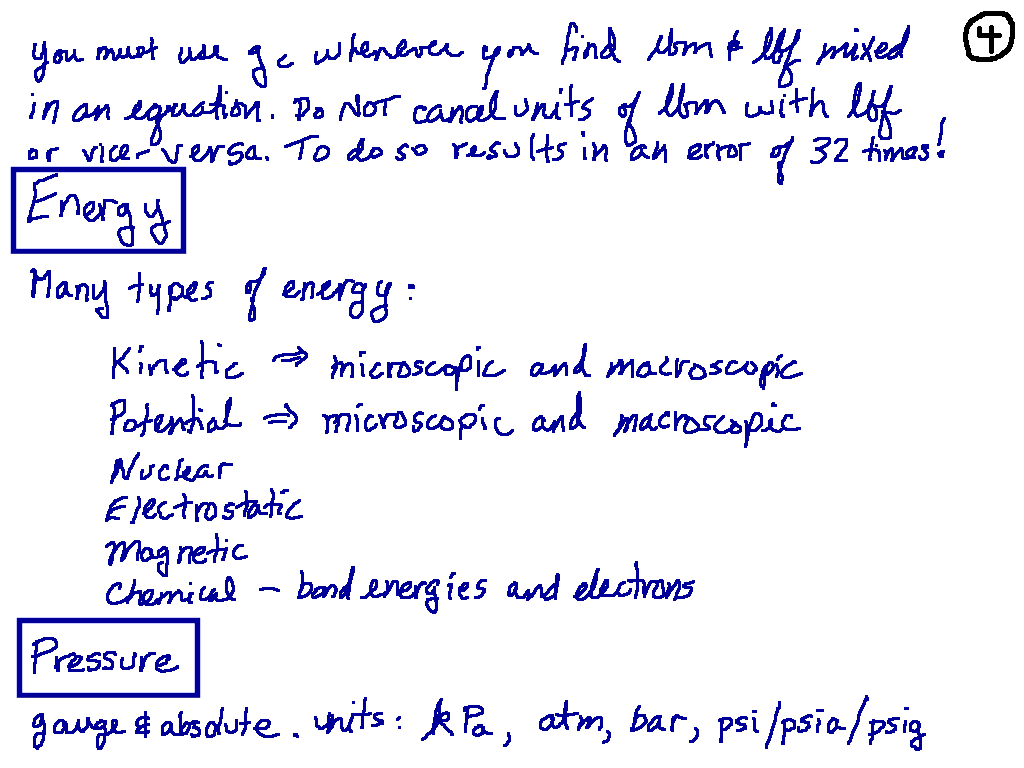 you must use gc whenever you find lbm & lbf mixed
④
in an equation. Do NOT cancel units of lbm with lbf
or vice-versa. To do so results in an error of 32 times!
Energy
Many types of energy:
Kinetic ⇒ microscopic and macroscopic
Potential ⇒ microscopic and macroscopic
Nuclear
Electrostatic
Magnetic
Chemical – bond energies and electrons
Pressure
gauge & absolute. units: kPa, atm, bar, psi/psia/psig